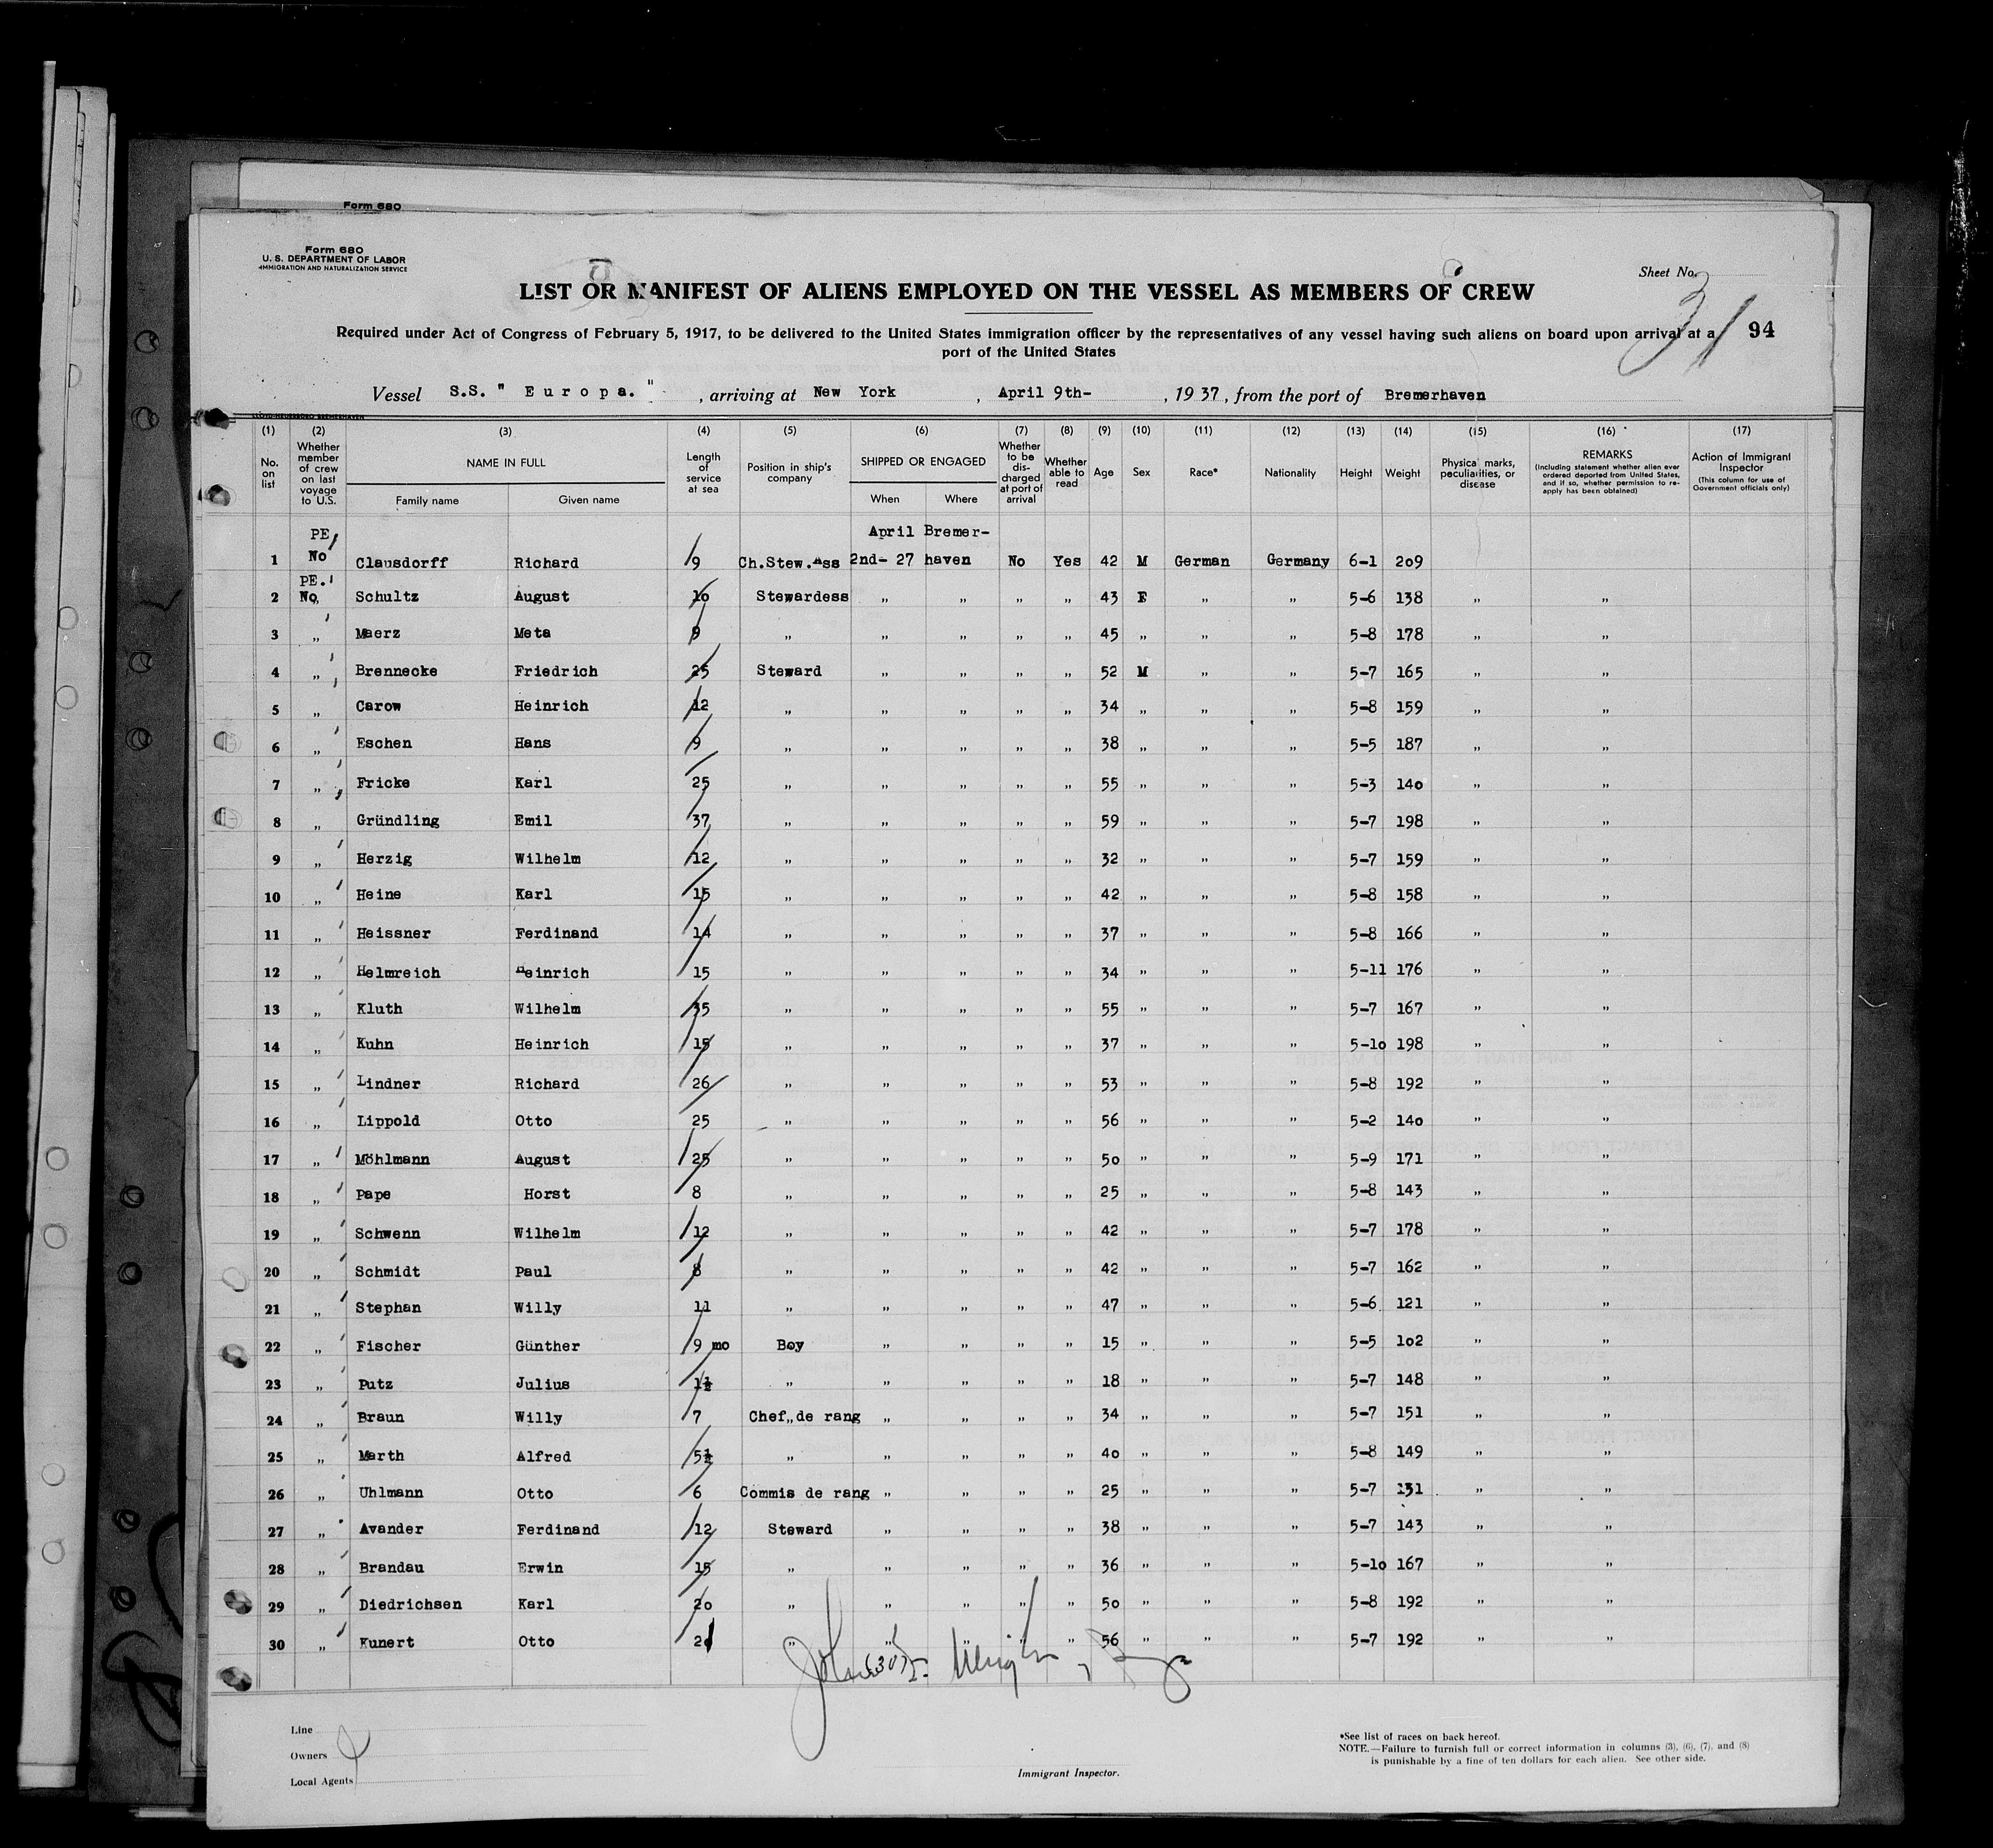 Form 680
Form 680
U. S. DEPARTMENT OF LABOR
IMMIGRATION AND NATURALIZATION SERVICE
Sheet No.
31
94
LIST OR MANIFEST OF ALIENS EMPLOYED ON THE VESSEL AS MEMBERS OF CREW
Required under Act of Congress of February 5, 1917, to be delivered to the United States immigration officer by the representatives of any vessel having such aliens on board upon arrival at a
port of the United States
Vessel S.S. " Europa. " , arriving at New York , April 9th- , 1937, from the port of Bremerhaven
(1) (2) (3) (4) (5) (6) (7) (8) (9) (10) (11) (12) (13) (14) (15) (16) (17)
No. on list Whether member of crew on last voyage to U.S. NAME IN FULL Family name Given name Length of service at sea Position in ship's company SHIPPED OR ENGAGED When Where Whether to be discharged at port of arrival Whether able to read Age Sex Race* Nationality Height Weight Physical marks, peculiarities, or disease REMARKS (Including statement whether alien ever ordered deported from United States, and if so, whether permission to reapply has been obtained) Action of Immigrant Inspector (This column for use of Government officials only)
PE April Bremer-
1 No Clausdorff Richard 9 Ch.Stew.Ass 2nd- 27 haven No Yes 42 M German Germany 6-1 209
PE.
2 No, Schultz August 10 Stewardess „ „ „ „ 43 F „ „ 5-6 138 „ „
3 „ Maerz Meta 9 „ „ „ „ „ 45 „ „ „ 5-8 178 „ „
4 „ Brennecke Friedrich 25 Steward „ „ „ „ 52 M „ „ 5-7 165 „ „
5 „ Carow Heinrich 12 „ „ „ „ „ 34 „ „ „ 5-8 159 „ „
6 „ Eschen Hans 9 „ „ „ „ „ 38 „ „ „ 5-5 187 „ „
7 „ Fricke Karl 25 „ „ „ „ „ 55 „ „ „ 5-3 140 „ „
8 „ Gründling Emil 37 „ „ „ „ „ 59 „ „ „ 5-7 198 „ „
9 „ Herzig Wilhelm 12 „ „ „ „ „ 32 „ „ „ 5-7 159 „ „
10 „ Heine Karl 15 „ „ „ „ „ 42 „ „ „ 5-8 158 „ „
11 „ Heissner Ferdinand 14 „ „ „ „ „ 37 „ „ „ 5-8 166 „ „
12 „ Helmreich Heinrich 15 „ „ „ „ „ 34 „ „ „ 5-11 176 „ „
13 „ Kluth Wilhelm 35 „ „ „ „ „ 55 „ „ „ 5-7 167 „ „
14 „ Kuhn Heinrich 15 „ „ „ „ „ 37 „ „ „ 5-10 198 „ „
15 „ Lindner Richard 26 „ „ „ „ „ 53 „ „ „ 5-8 192 „ „
16 „ Lippold Otto 25 „ „ „ „ „ 56 „ „ „ 5-2 140 „ „
17 „ Möhlmann August 25 „ „ „ „ „ 50 „ „ „ 5-9 171 „ „
18 „ Pape Horst 8 „ „ „ „ „ 25 „ „ „ 5-8 143 „ „
19 „ Schwenn Wilhelm 12 „ „ „ „ „ 42 „ „ „ 5-7 178 „ „
20 „ Schmidt Paul 8 „ „ „ „ „ 42 „ „ „ 5-7 162 „ „
21 „ Stephan Willy 11 „ „ „ „ „ 47 „ „ „ 5-6 121 „ „
22 „ Fischer Günther 9 mo Boy „ „ „ „ 15 „ „ „ 5-5 102 „ „
23 „ Putz Julius 1½ „ „ „ „ „ 18 „ „ „ 5-7 148 „ „
24 „ Braun Willy 7 Chef„de rang „ „ „ „ 34 „ „ „ 5-7 151 „ „
25 „ Marth Alfred 5½ „ „ „ „ „ 40 „ „ „ 5-8 149 „ „
26 „ Uhlmann Otto 6 Commis de rang „ „ „ „ 25 „ „ „ 5-7 131 „ „
27 „ Avander Ferdinand 12 Steward „ „ „ „ 38 „ „ „ 5-7 143 „ „
28 „ Brandau Erwin 15 „ „ „ „ „ 36 „ „ „ 5-10 167 „ „
29 „ Diedrichsen Karl 20 „ „ „ „ „ 50 „ „ „ 5-8 192 „ „
30 „ Kunert Otto „ „ „ „ „ 56 „ „ „ 5-7 192 „ „
Line
Owners
Local Agents
Immigrant Inspector.
*See list of races on back hereof.
NOTE.—Failure to furnish full or correct information in columns (3), (6), (7), and (8)
is punishable by a fine of ten dollars for each alien. See other side.